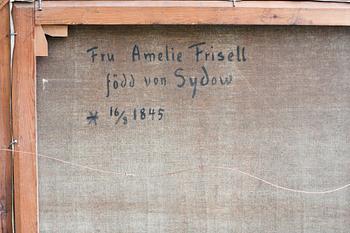 Fru Amelie Frisell
född von Sydow
* 16/8 1845